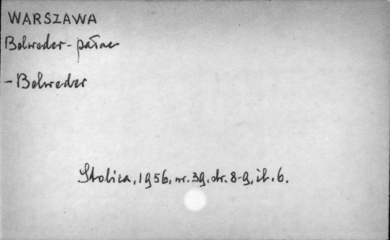 WARSZAWA
Belweder - pałac
- Belweder
Stolica, 1956, nr. 39, str. 8-9, il. 6.